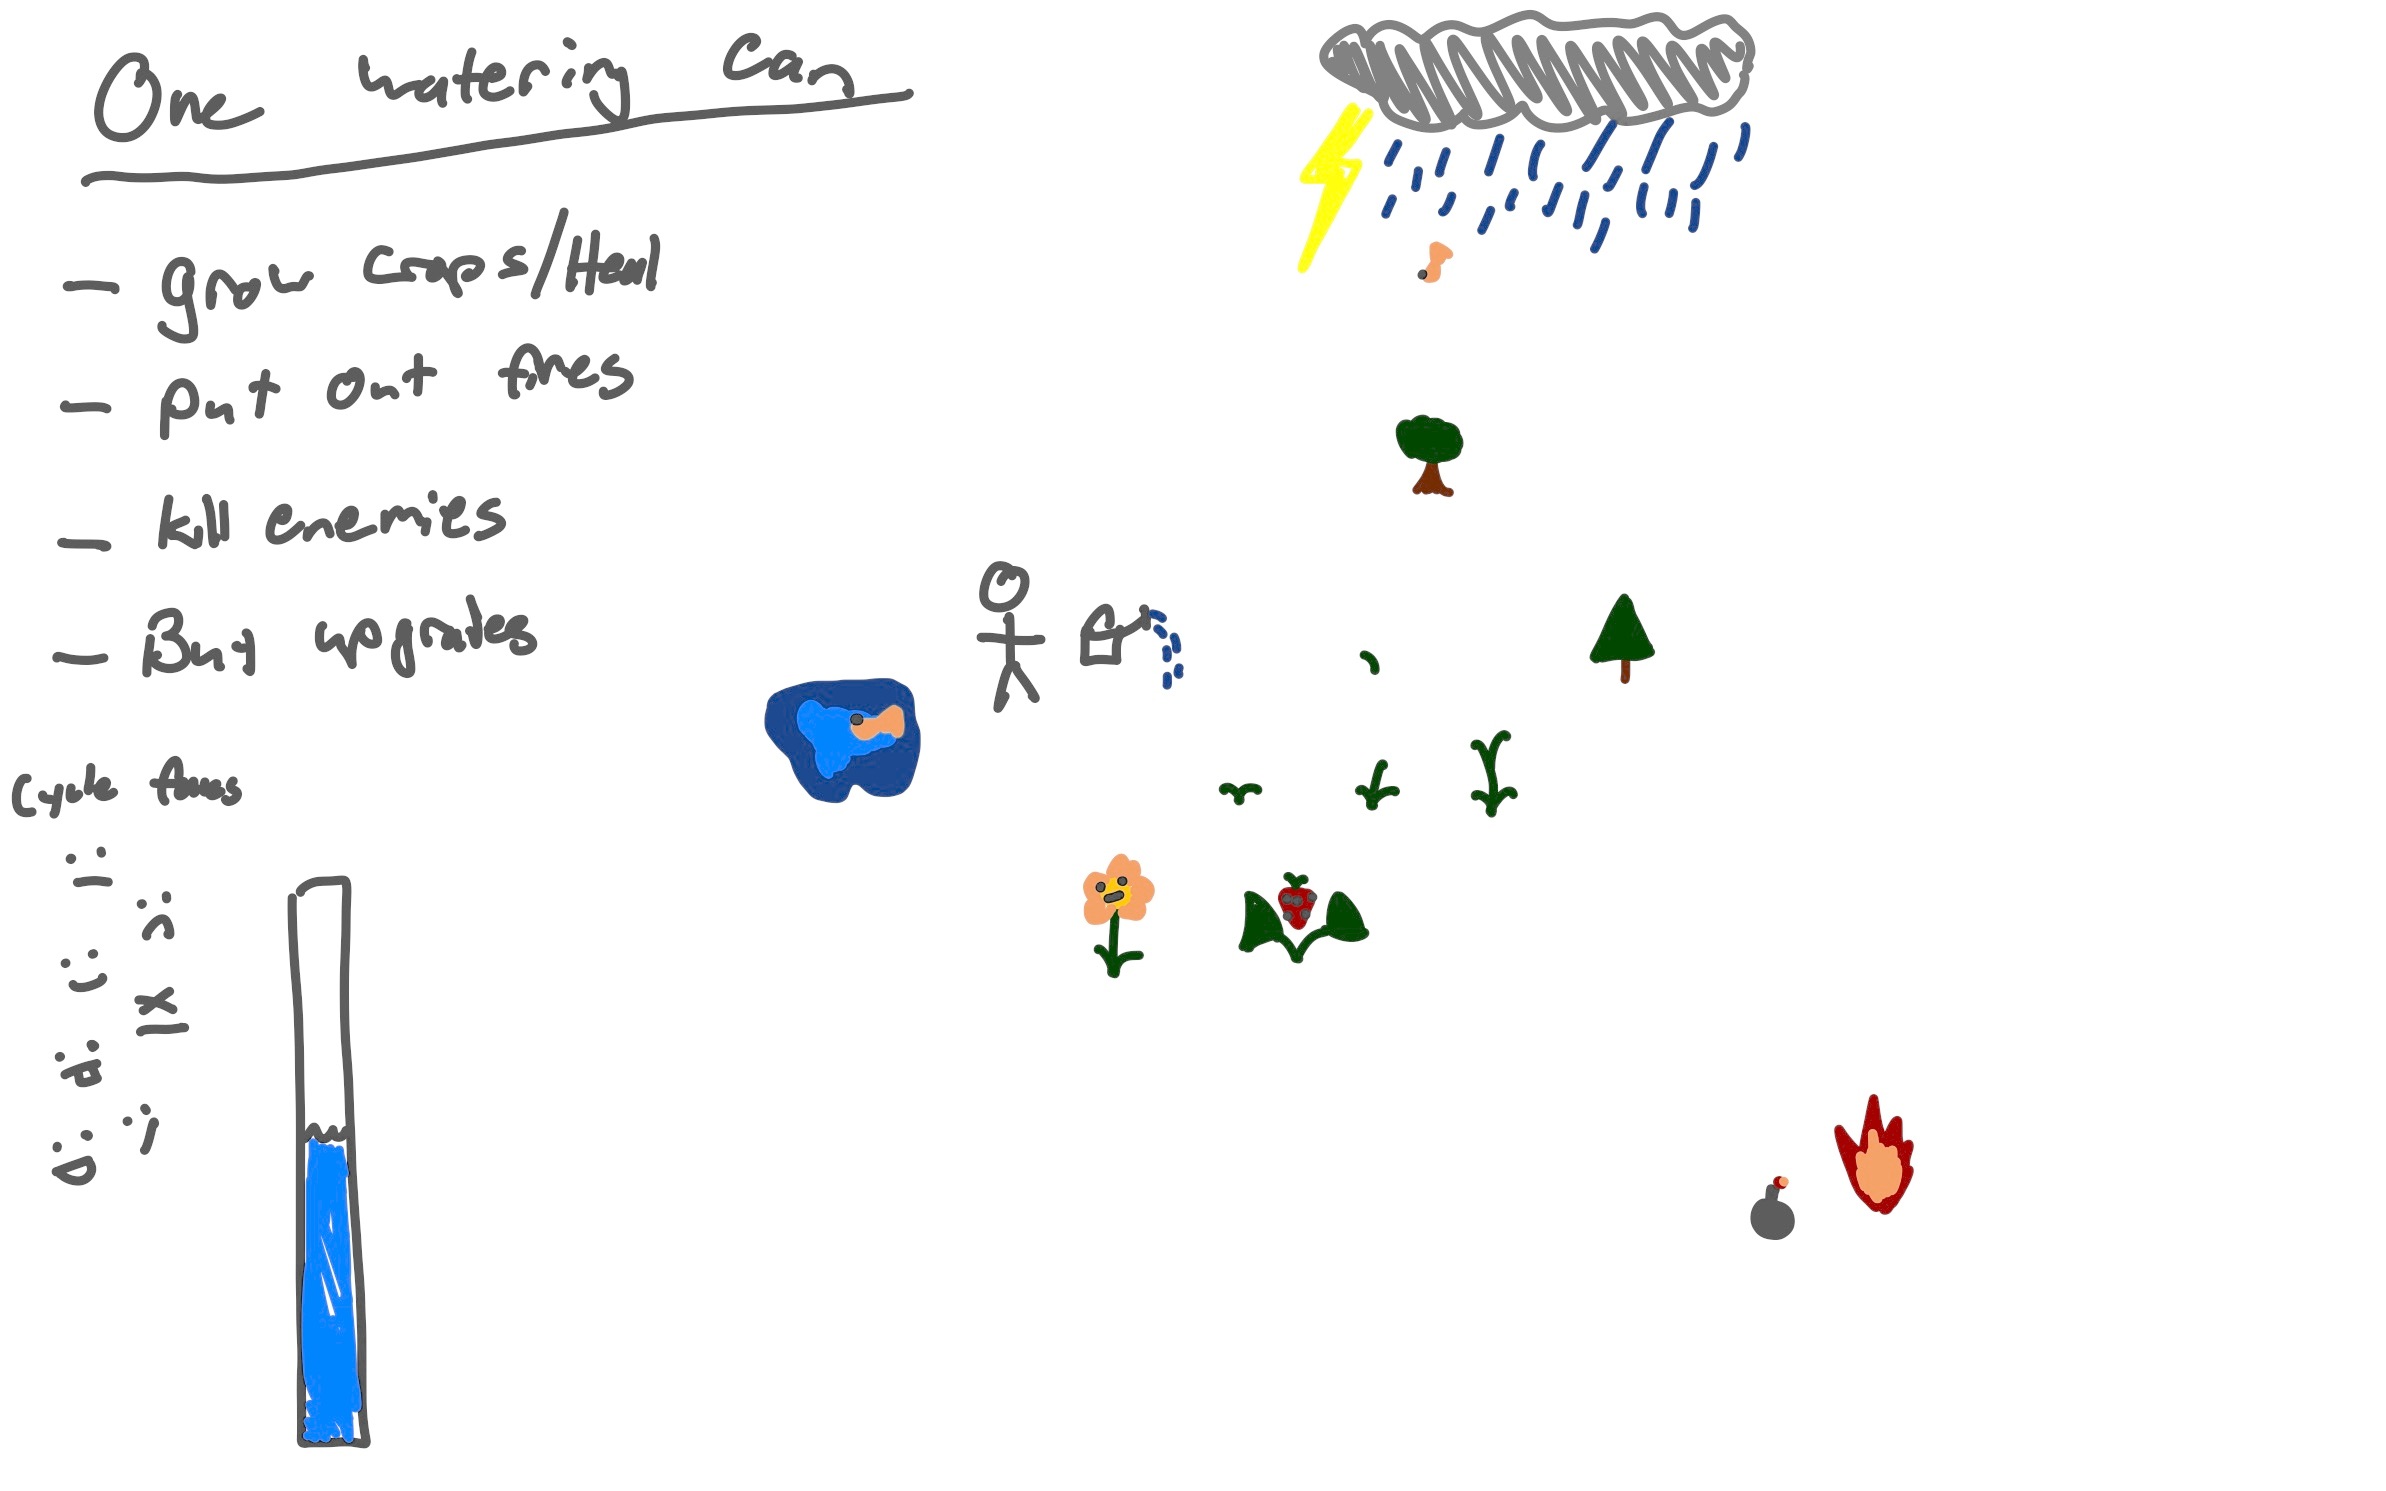 One watering Can
- grow Crops/Heal
- put out fires
- kill enemies
- Buy upgrades
Cycle faces